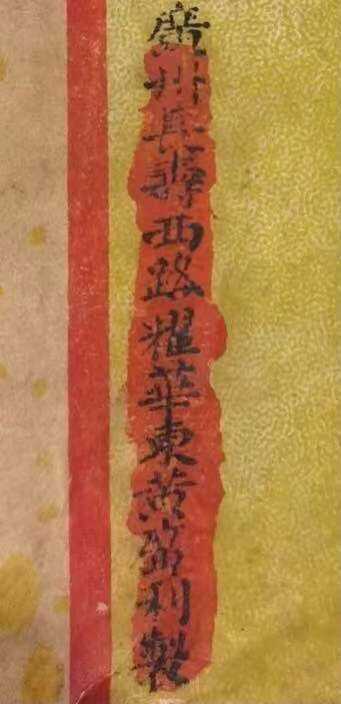 廣州長壽西路耀華東黃富利製